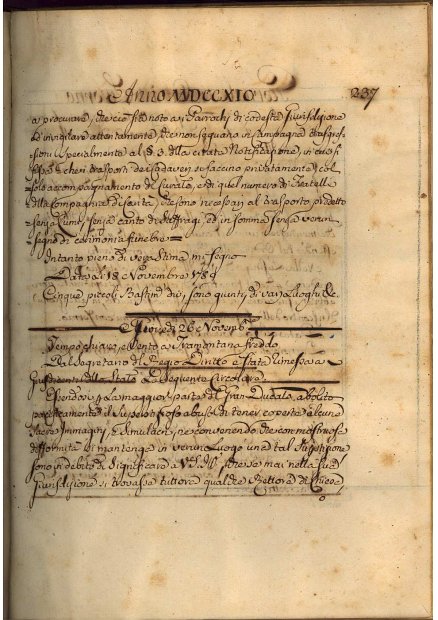 Anno MDCCXIC 237
a procurare, che ciò sia noto a i Parrochi di codesta Giurisdizione
ed invigilare attentamente, che non seguano in Campagna trasgres-
sioni specialmente al §. 3. della citata Notificazione, in cui si
che i trasporti dei Cadaveri si facciano privatamente, col
solo accompagnamento del Curato, e di quel numero di Fratelli
della Compagnia di Carità, che sono necessari al trasporto predetto
senza Lumi, senza canto di suffragi, ed in somma senza verun
segno di cerimonia funebre =
Intanto pieno di vera stima mi segno
Data li 18 Novembre 1789
Cinque piccoli Bastimti. div. sono giunti di varii Luoghi &c.
Giovedì 26 Novembe.
Tempo chiaro, e Vento a Tramontana freddo
Dal Segretario del Regio Diritto è stata rimessa a
Giusdicenti dello Stato la seguente Circolare
Essendo p. la maggior parte del Gran Ducato abolito
pacificamente il superstizioso abuso di tener coperte alcune
Sacre Immagini, e Simulacri, ne convenendo che con mostruosa
difformità si mantenga in verun Luogo una tal superstizione
sono in debito di significare a V.S. Ill. che se mai nella sua
Giurisdizione si trovasse tuttora qualche Rettore di Chiese